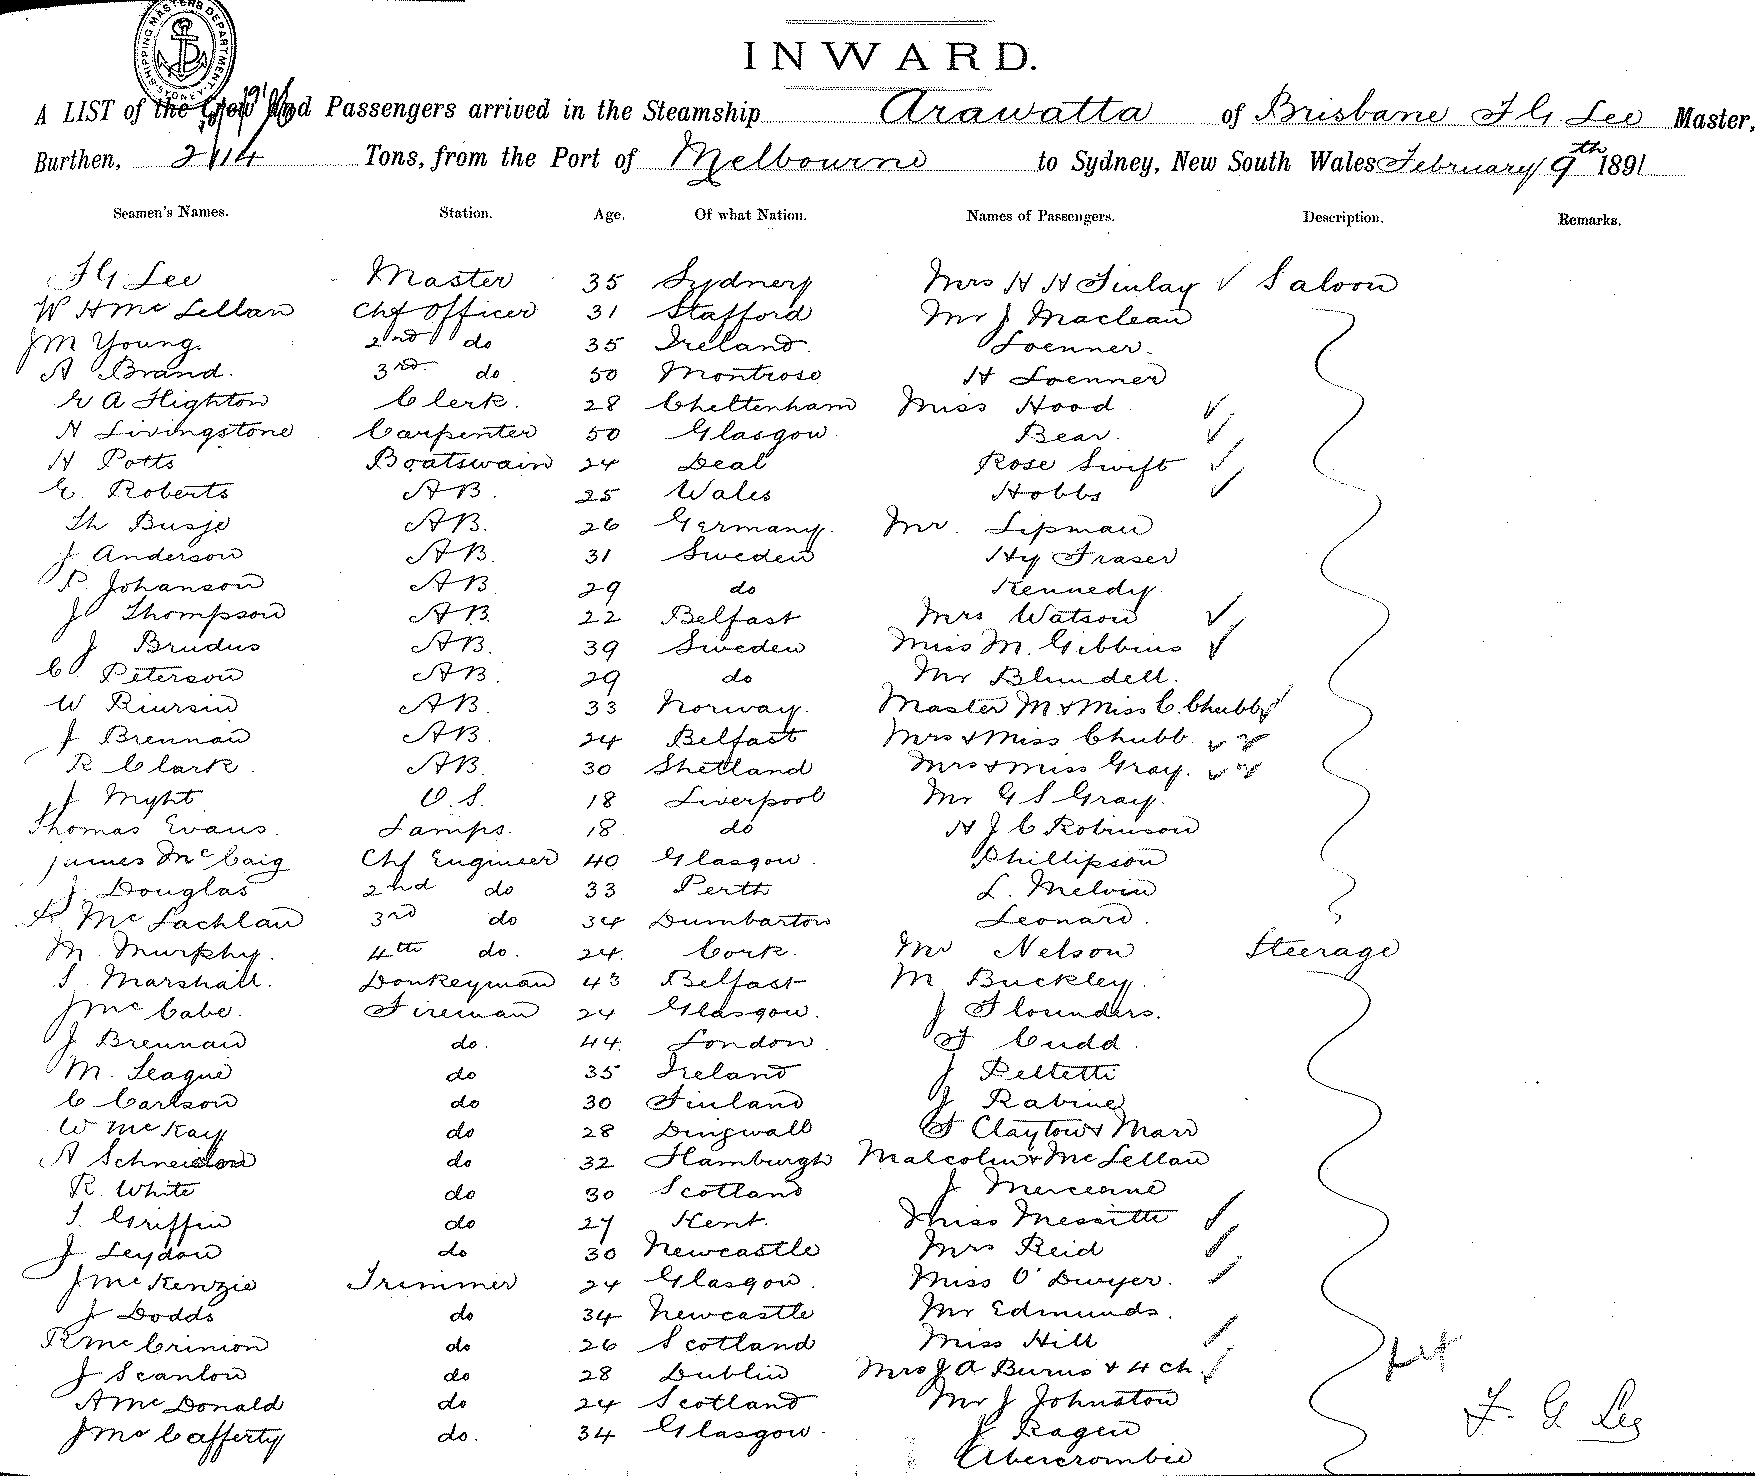 SHIPPING MASTERS DEPARTMENT SYDNEY
INWARD.
A LIST of the Crew and Passengers arrived in the Steamship Arawatta of Brisbane F G Lee Master,
Burthen, 2114 Tons, from the Port of Melbourne to Sydney, New South Wales February 9th 1891
Seamen's Names. Station. Age. Of what Nation. Names of Passengers. Description. Remarks.
F G Lee Master 35 Sydney Mrs H H Finlay ✓ Saloon
W H Mc Lellan Chf Officer 31 Stafford Mr J Maclean
J M Young. 2nd do 35 Ireland. Loenner.
A Brand. 3rd do 50 Montrose H Loenner
E A Highton Clerk. 28 Cheltenham Miss Hood ✓
N Livingstone Carpenter 50 Glasgow. Bear. ✓
H Potts Boatswain 24 Deal Rose Swift ✓
E. Roberts AB. 25 Wales Hobbs ✓
Th Busje AB. 26 Germany. Mr. Lipman
J Anderson AB. 31 Sweden Hy Fraser
P. Johanson AB 29 do Kennedy
J Thompson AB. 22 Belfast Mrs Watson ✓
J Brudus AB. 39 Sweden Miss M. Gibbins ✓
C Peterson AB. 29 do Mr Blundell.
W AB. 33 Norway. Master M & Miss C. Chubb ✓
J Brennan AB. 24 Belfast Mrs & Miss Chubb ✓ ✓
R Clark. AB. 30 Shetland Mrs & Miss Gray. ✓ ✓
J Myht O.S. 18 Liverpool Mr G S Gray.
Thomas Evans. Lamps. 18. do H J C Robinson
James McCaig Chf Engineer 40 Glasgow. Phillipson
J. Douglas 2nd do 33 Perth L. Melvin
Mc Lachlan 3rd do 34 Dumbarton Leonard.
M. Murphy. 4th do. 24. Cork. Mr Nelson Steerage
S. Marshall. Donkeyman 43 Belfast M Buckley.
J McCabe. Fireman 24 Glasgow. J Flounders.
J Brennan do. 44. London F Cudd.
M. League do 35 Ireland J Peltetti
C Carlson do 30 Finland J Rabine
W McKay do 28 Dingwall F Clayton & Marr
A do 32 Hamburgh Malcolm & McLellan
R. White do 30 Scotland J
S. Griffin do 27 Kent. Miss Messitte ✓
J Leydon do 30 Newcastle Mrs Reid ✓
J McKenzie Trimmer 24 Glasgow. Miss O'Dwyer. ✓
J Dodds do 34 Newcastle Mr Edmunds.
R McCrinion do 26 Scotland Miss Hill ✓
J Scanlon do 28 Dublin Mrs J A Burns & 4 ch. ✓
A McDonald do 24 Scotland Mr J Johnston
J McCafferty do. 34 Glasgow. J Ragen
Abercrombie
F. G. Lee